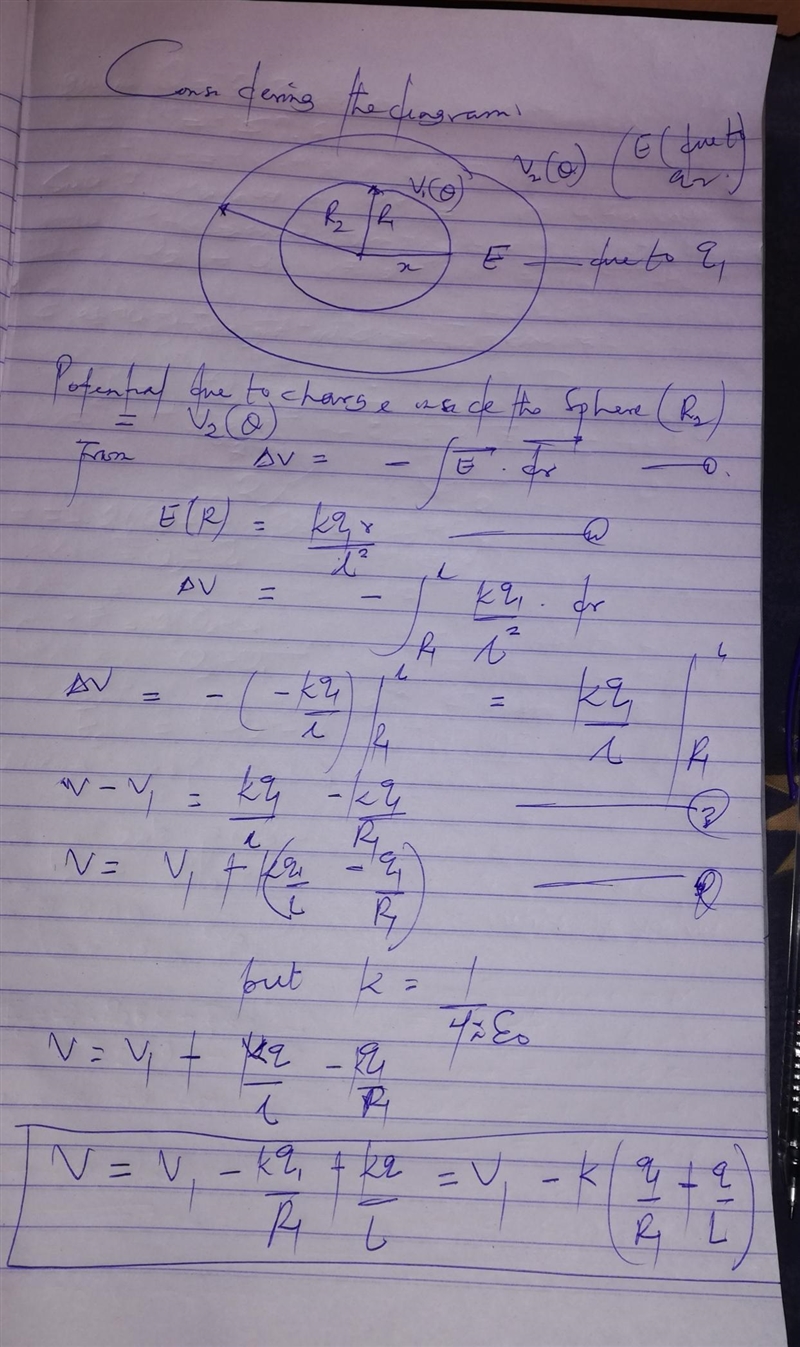 Considering the diagram,
V₂(θ) (E(due to
q₂.)
V₁(θ)
R₂ R₁
x E — due to q₁
Potential due to charge inside the Sphere (R₂)
= V₂(θ)
From ΔV = - ∫ E⃗ . dr⃗ — ①.
E(R) = kq₁r / r² — ②
ΔV = - ∫_{R₁}^{r} kq₁/r² . dr
ΔV = - (-kq₁/r) |_{R₁}^{r} = kq₁/r |_{R₁}^{r}
V - V₁ = kq₁/r - kq₁/R₁ — ③
V = V₁ + k(q₁/r - q₁/R₁) —
but k = 1/4πε₀
V = V₁ + kq/r - kq₁/R₁
V = V₁ - kq₁/R₁ + kq/r = V₁ - k(q₁/R₁ + q/r)